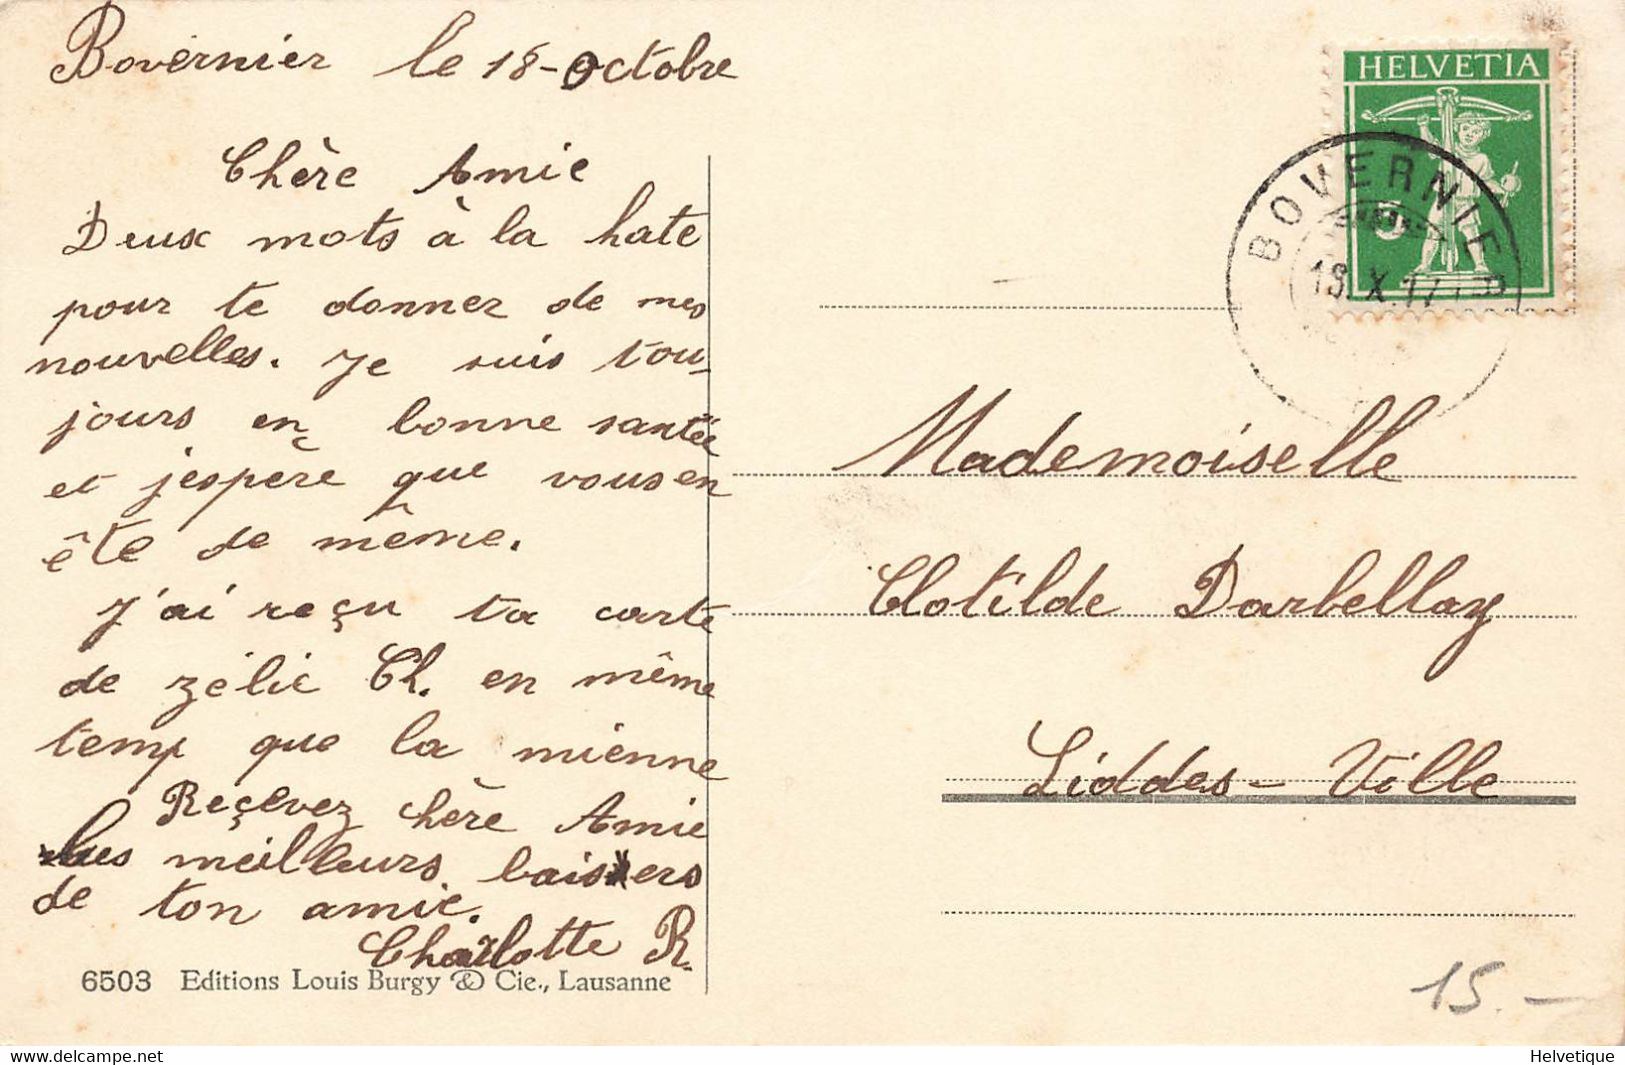 Bovernier le 18-Octobre
Chère Amie
Deux mots à la hate
pour te donner de mes
nouvelles. Je suis tou-
jours en bonne santée
et j'espère que vous en
ête de même.
J'ai reçu ta carte
de zélie Ch. en même
temp que la mienne
Reçevez chère Amie
les meilleurs baisers
de ton amie.
Charlotte R.
6503 Editions Louis Burgy & Cie., Lausanne
HELVETIA
5
BOVERNIER
18.X.17
Mademoiselle
Clotilde Darbellay
Liddes-Ville
15.-
delcampe.net
Helvetique